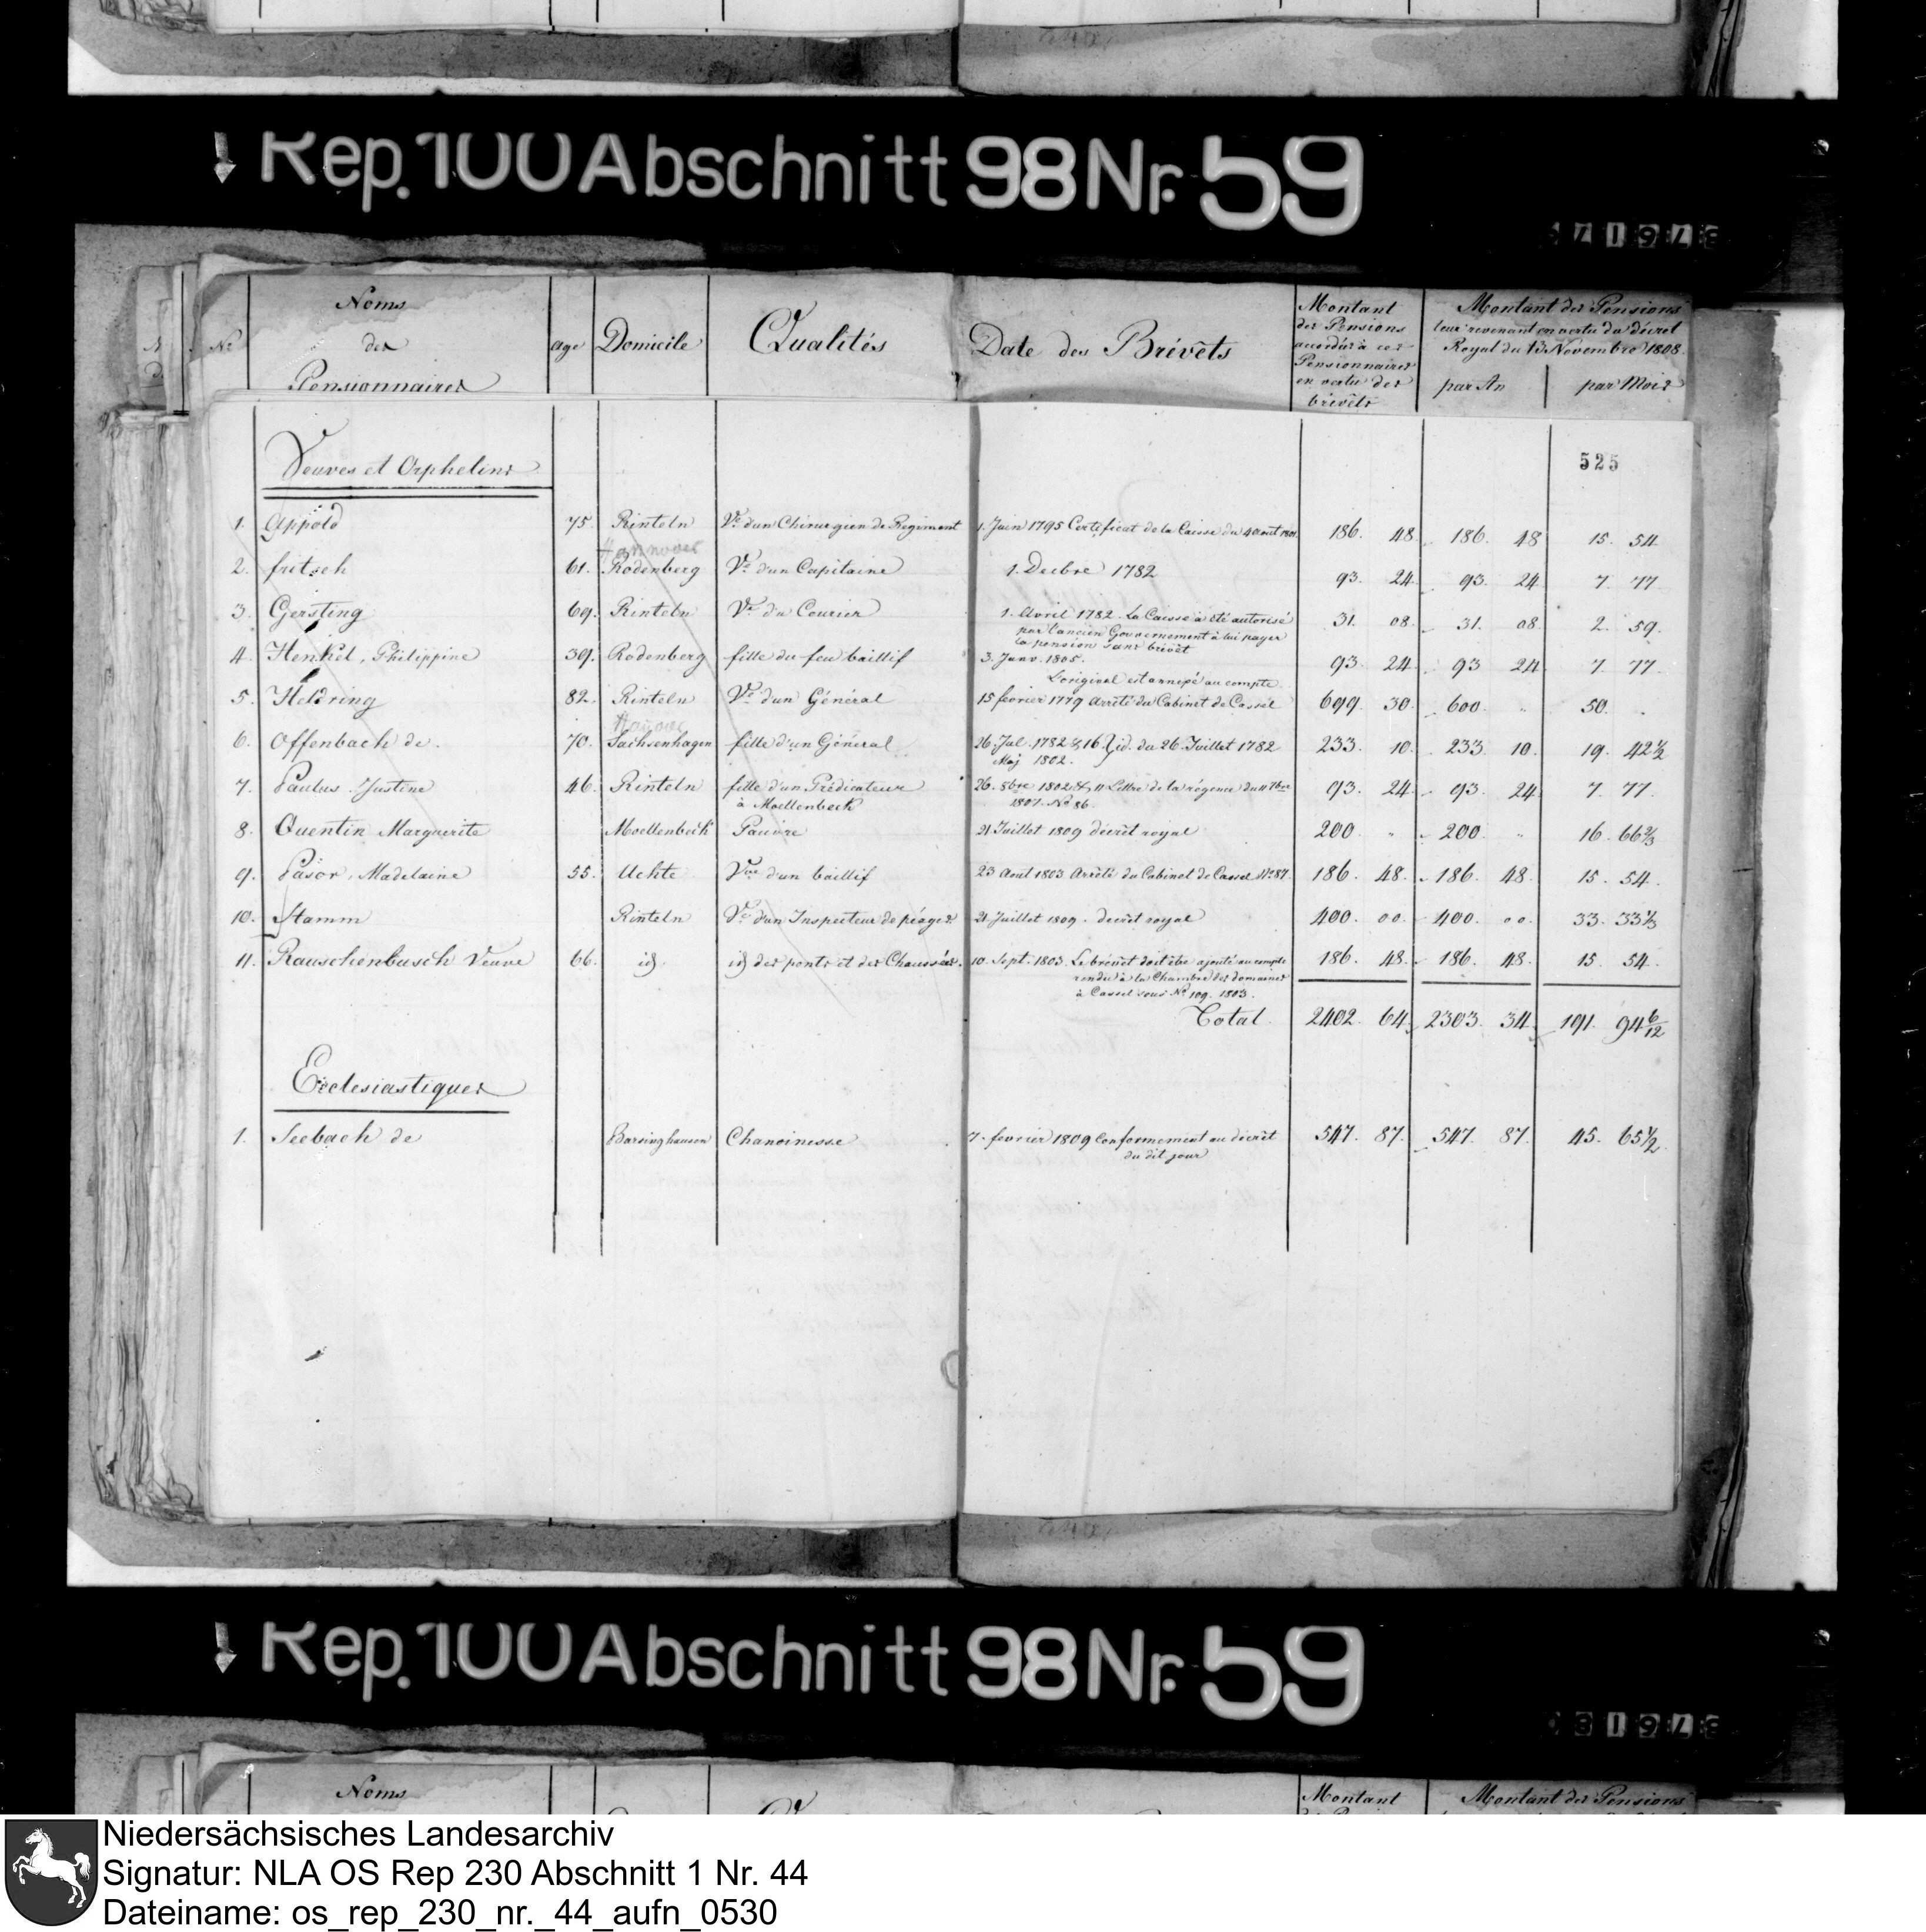 Rep. 100 Abschnitt 98 Nr. 59
Nº
Noms
des
Pensionnaires
age
Domicile
Qualités
Date des Brévêts
Montant
des Pensions
accordées à ces
Pensionnaires
en vertu des
brévêts
Montant des Pensions
leur revenant en vertu du décret
Royal du 13 Novembre 1808.
par An
par Mois
525
Veuves et Orphelins
1. Appold 75. Rinteln Ve d'un Chirurgien de Régiment 1. Juin 1795 Certificat de la Caisse du 4 août 1801. 186. 48. 186. 48 15. 54
Hannover
2. fritsch 61. Rodenberg Ve d'un Capitaine 1. Decbre 1782 93. 24. 93. 24 7. 77
3. Gersting 69. Rinteln Ve du Courier 1. Avril 1782. La Caisse a été autorisé 31. 08. 31. 08. 2. 59.
par l'ancien Gouvernement à lui payer
la pension sans brévêt
4. Henkel, Philippine 39. Rodenberg fille du feu baillif 3. Janv. 1805. 93. 24. 93 24 7. 77.
L'original est annexé au compte
5. Heßring 82. Rinteln Ve d'un Général 15 fevrier 1779 Arrêté du Cabinet de Cassel 699. 30. 600 " 50. "
Hanover
6. Offenbach de. 70. Sachsenhagen fille d'un Général 26. Jul. 1782 & 16. id. du 26. Juillet 1782 233. 10. 233 10. 19. 42½
Maj 1802.
7. Paulus Justine 46. Rinteln fille d'un Prédicateur 26. 8bre 1802 & 11 Lettre de la régence du 11 7bre 93. 24. 93. 24 7. 77.
à Moellenbeck 1807. No 86.
8. Quentin Marguerite Moellenbeck Pauvre 21 Juillet 1809 décrêt royal 200 " 200. " 16. 66⅔
9. Pasor, Madelaine 55. Uchte Vve d'un baillif 23 Aout 1803 Arrêté du Cabinet de Cassel No 87. 186. 48. 186. 48. 15. 54.
10. Stamm Rinteln Ve d'un Inspecteur de péages 21. Juillet 1809. decrêt royal 400. 00. 400. 00. 33. 33⅓
11. Rauschenbusch Veuve 66. id id des ponts et des Chaussées. 10. Sept. 1803. Le brévêt doit être ajouté au compte 186. 48. 186. 48. 15. 54.
rendu à la Chambre des domaines
à Cassel sous No 109. 1803.
Total 2402. 64. 2303. 34. 191. 94 6/12
Ecclesiastiques
1. Seebach de Barsinghausen Chanoinesse 7. fevrier 1809 Conformement au décrêt 547. 87. 547. 87. 45. 65½
du dit jour
Rep. 100 Abschnitt 98 Nr. 59
Noms
Montant
Montant des Pensions
Niedersächsisches Landesarchiv
Signatur: NLA OS Rep 230 Abschnitt 1 Nr. 44
Dateiname: os_rep_230_nr._44_aufn_0530